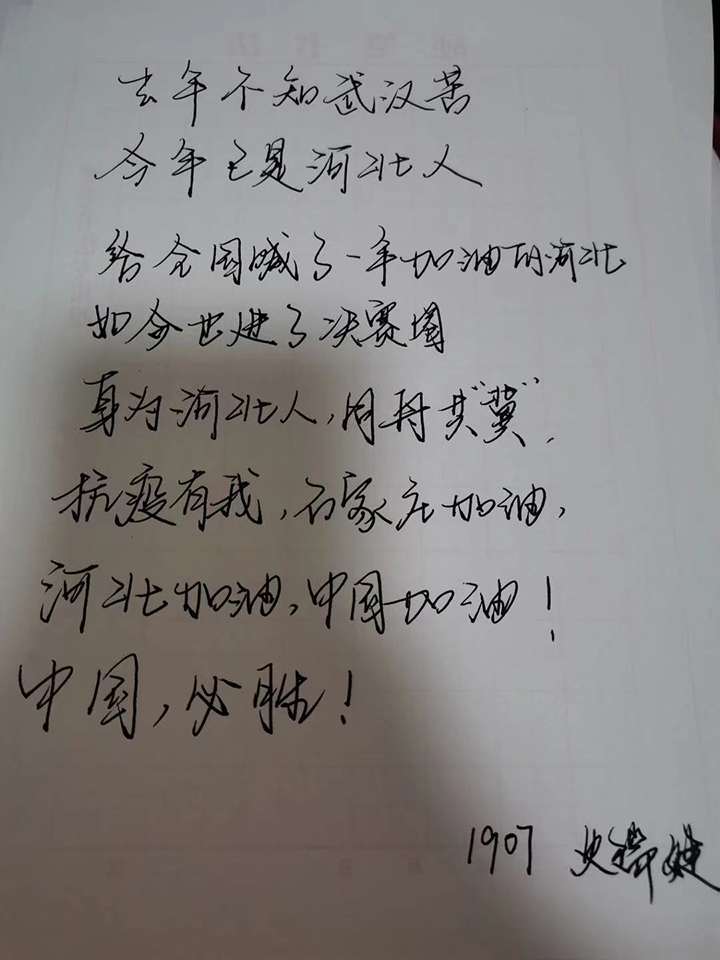 去年不知武汉苦
今年已是河北人
给全国喊了一年加油的河北
如今也进了决赛圈
身为河北人，同舟共“冀”，
抗疫有我，石家庄加油，
河北加油，中国加油！
中国，必胜！
1907 史